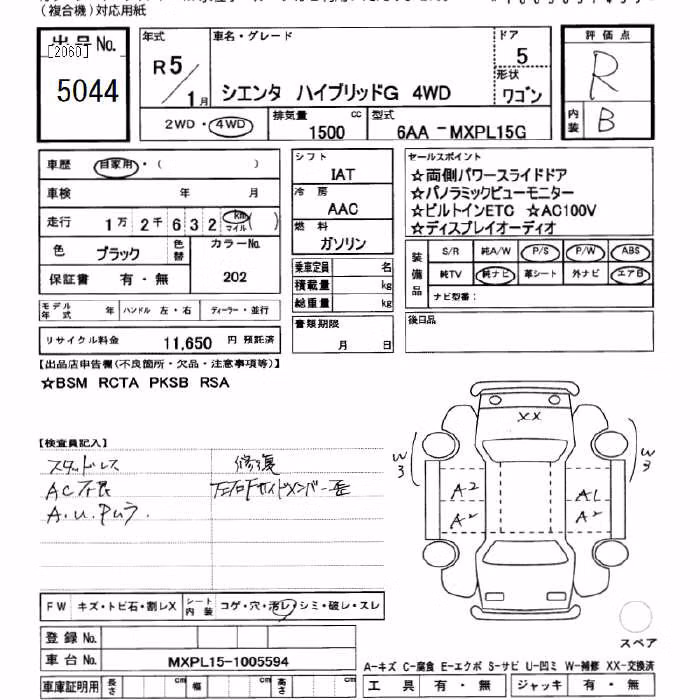 （複合機）対応用紙
出品No.
[2060]
5044
年式
R5/1月
車名・グレード
シエンタ ハイブリッドG 4WD
ドア
5
形状
ワゴン
評価点
R
内装
B
2WD・4WD
排気量
1500 cc
型式
6AA－MXPL15G
車歴 自家用・（ ）
車検 年 月
走行 1万2千632 km マイル（ ）
色 ブラック 色替
カラーNo.
202
保証書 有・無
モデル年式 年 ハンドル 左・右 ディーラー・並行
リサイクル料金 11,650 円 預託済
シフト
IAT
冷房
AAC
燃料
ガソリン
乗車定員 名
積載量 kg
総重量 kg
書類期限
月 日
セールスポイント
☆両側パワースライドドア
☆パノラミックビューモニター
☆ビルトインETC ☆AC100V
☆ディスプレイオーディオ
装備品
S/R 純A/W P/S P/W ABS
純TV 純ナビ 革シート 外ナビ エアB
ナビ型番：
後日品
【出品店申告欄（不良箇所・欠品・注意事項等）】
☆BSM RCTA PKSB RSA
【検査員記入】
スタッドレス 修復
AC不良
A.U.Pムラ.
XX
W3
W3
A2
A2
A1
A2
FW キズ・トビ石・割レX
シート内装 コゲ・穴・汚レ・シミ・破レ・スレ
登録No.
車台No. MXPL15-1005594
車庫証明用 長さ cm 幅 cm 高さ cm
スペア
A-キズ C-腐食 E-エクボ S-サビ U-凹ミ W-補修 XX-交換済
工具 有・無 ジャッキ 有・無